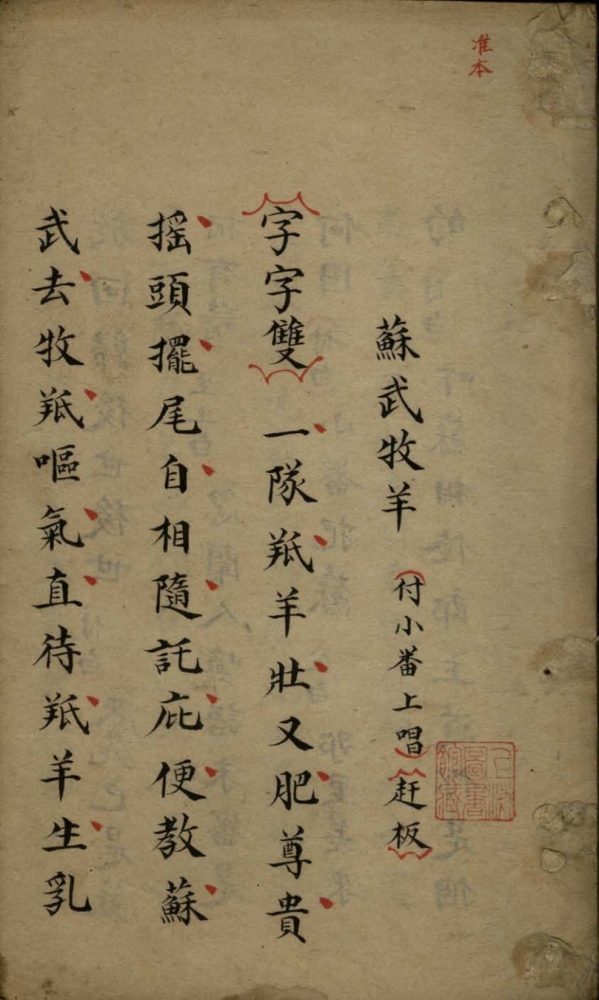 准本
蘇武牧羊 付小番上唱 赶板
字字雙 一隊羝羊壯又肥尊貴
摇頭擺尾自相隨託庇便教蘇
武去牧羝嘔氣直待羝羊生乳